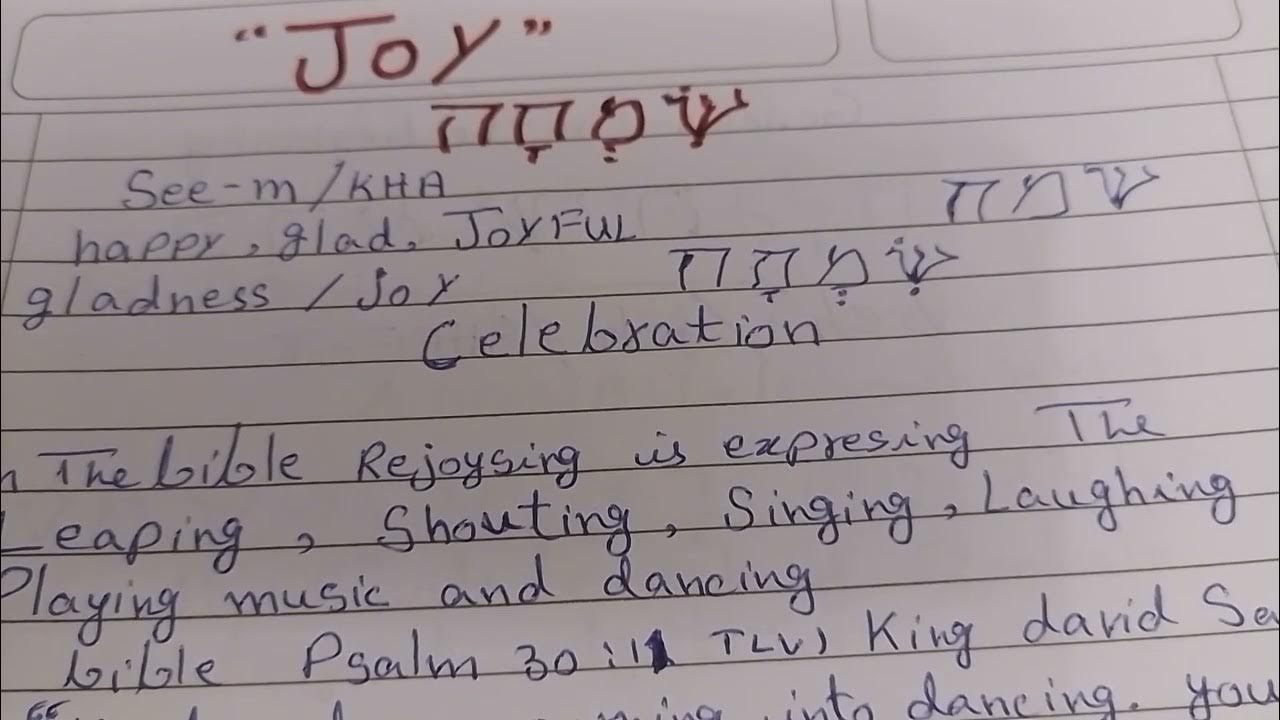 "JOY"
שִׂמְחָה
See-m/KHA שמח
happy, glad, JoyFuL
gladness / Joy שִׂמְחָה
Celebration
n The bible Rejoysing is expresing The
Leaping, Shouting, Singing, Laughing
Playing music and dancing
bible Psalm 30:11 TLV) King david Se
“ into dancing. you